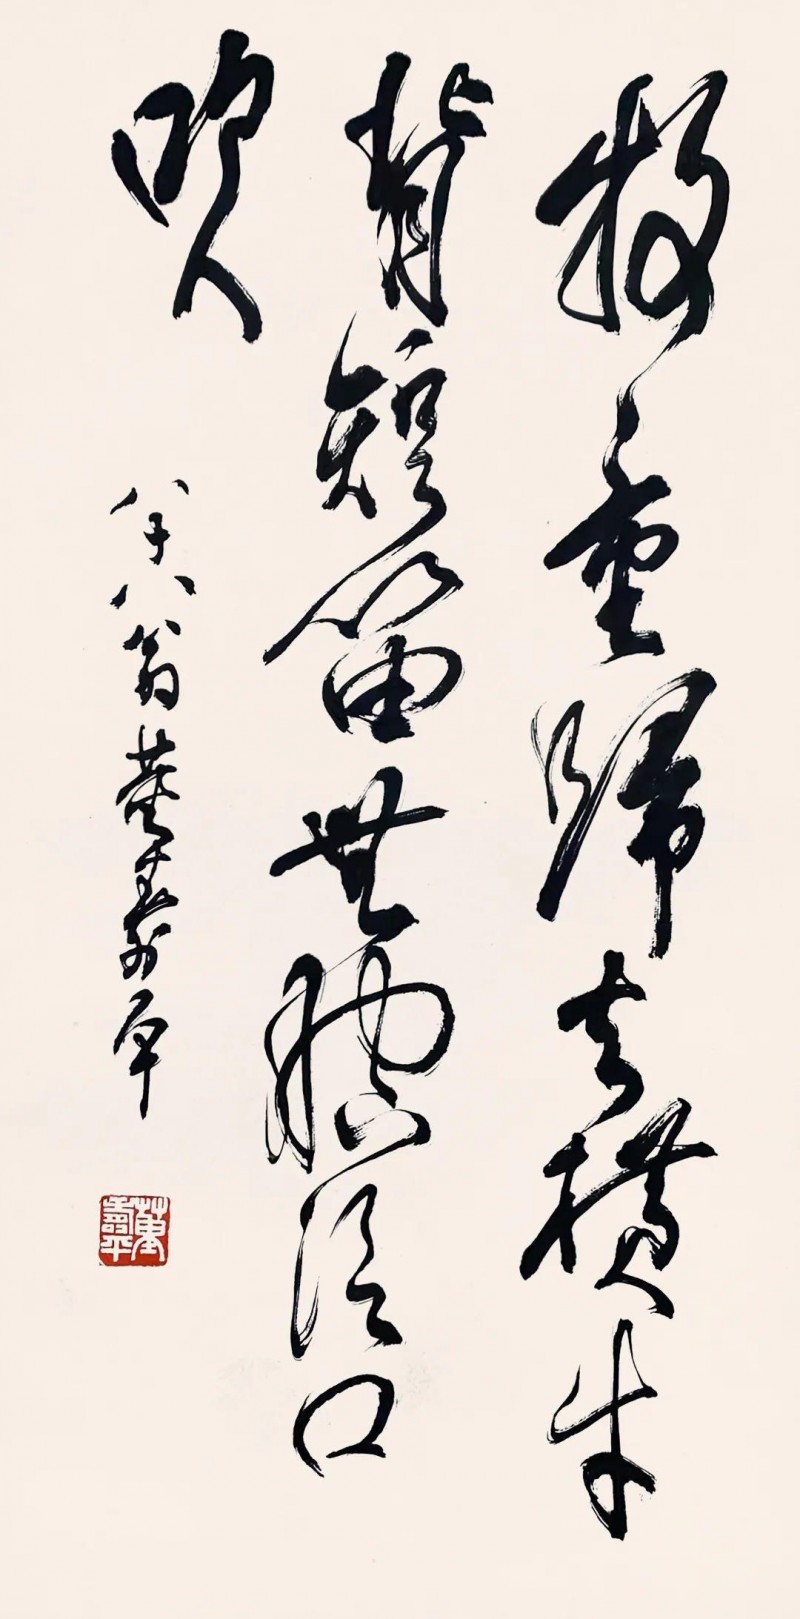 牧童歸去橫牛
背短笛無腔信口
吹
八十八翁董壽平
董壽平